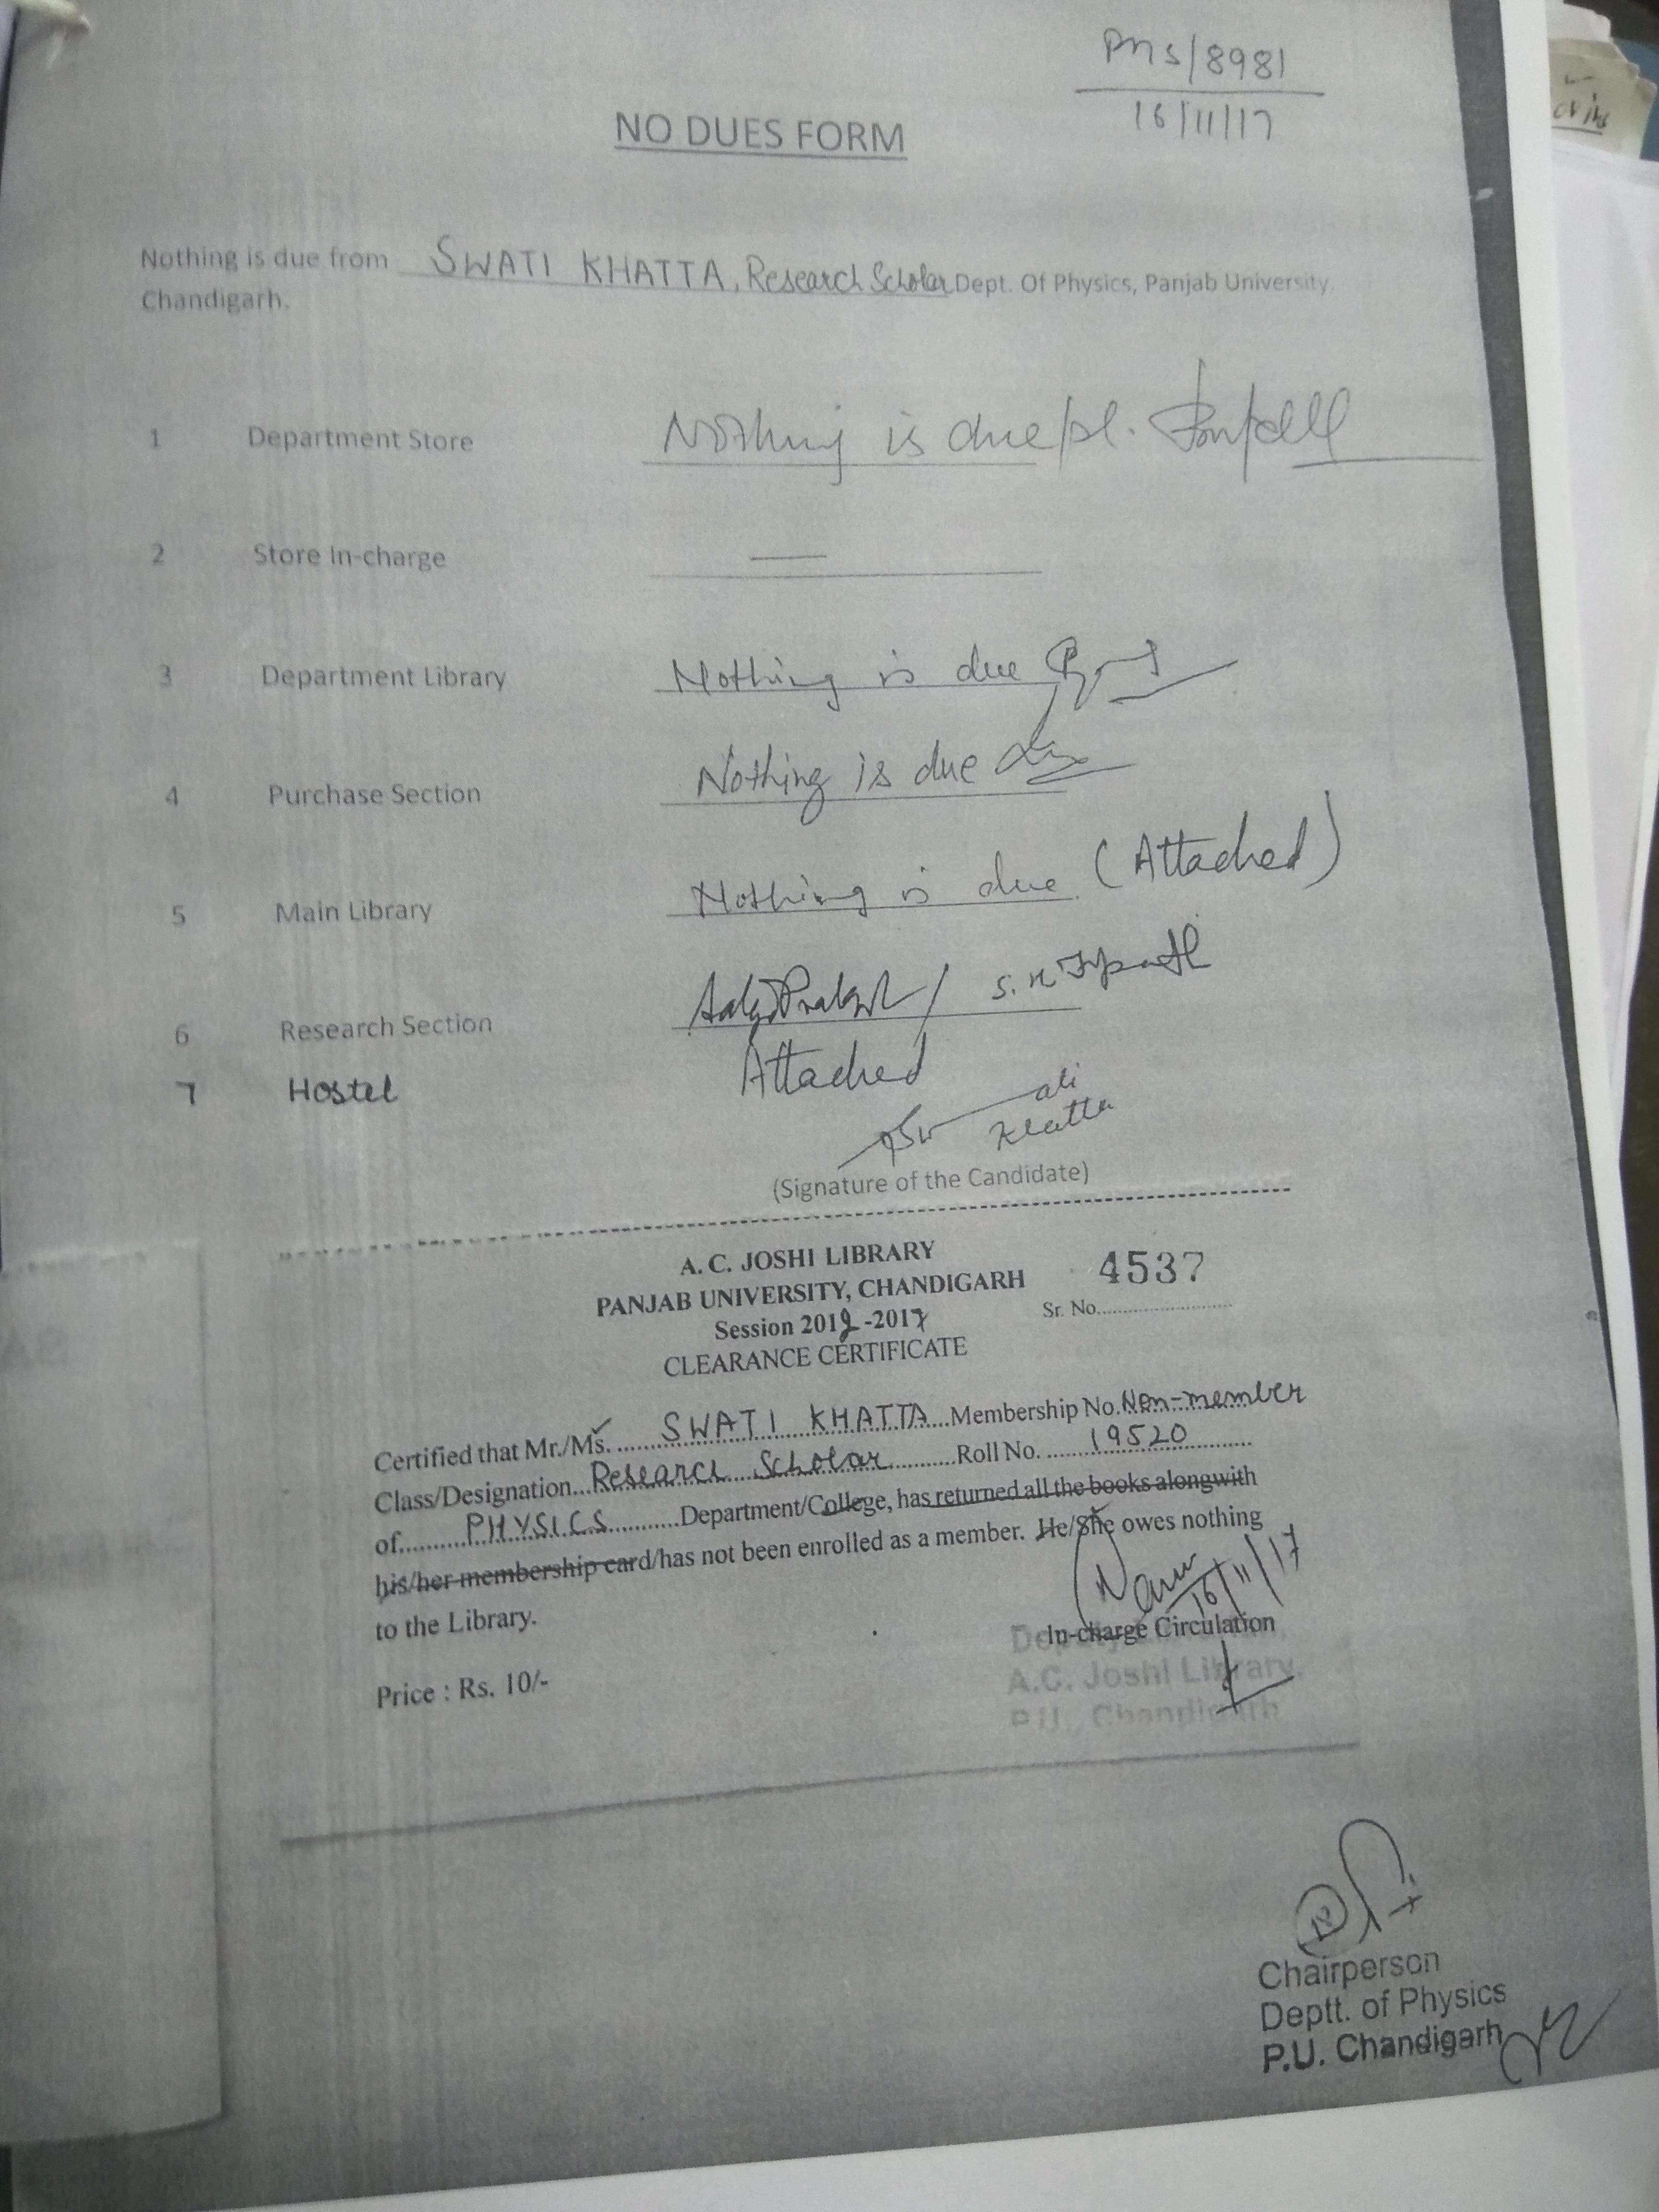 PMS/8981
16/11/17
NO DUES FORM
Nothing is due from SWATI KHATTA, Research Scholar Dept. Of Physics, Panjab University,
Chandigarh.
1 Department Store Nothing is due pl.
2 Store In-charge —
3 Department Library Nothing is due
4 Purchase Section Nothing is due
5 Main Library Nothing is due (Attached)
6 Research Section
7 Hostel Attached
Khatta
(Signature of the Candidate)
A. C. JOSHI LIBRARY
PANJAB UNIVERSITY, CHANDIGARH
4537
Session 2012-2017
Sr. No.
CLEARANCE CERTIFICATE
Certified that Mr./Ms. SWATI KHATTA Membership No. Non-member
Class/Designation Research Scholar Roll No. 19520
of PHYSICS Department/College, has returned all the books alongwith
his/her membership card/has not been enrolled as a member. He/She owes nothing
to the Library.
16/11/17
In-charge Circulation
A.C. Joshi Library
P.U., Chandigarh
Price : Rs. 10/-
Chairperson
Deptt. of Physics
P.U. Chandigarh